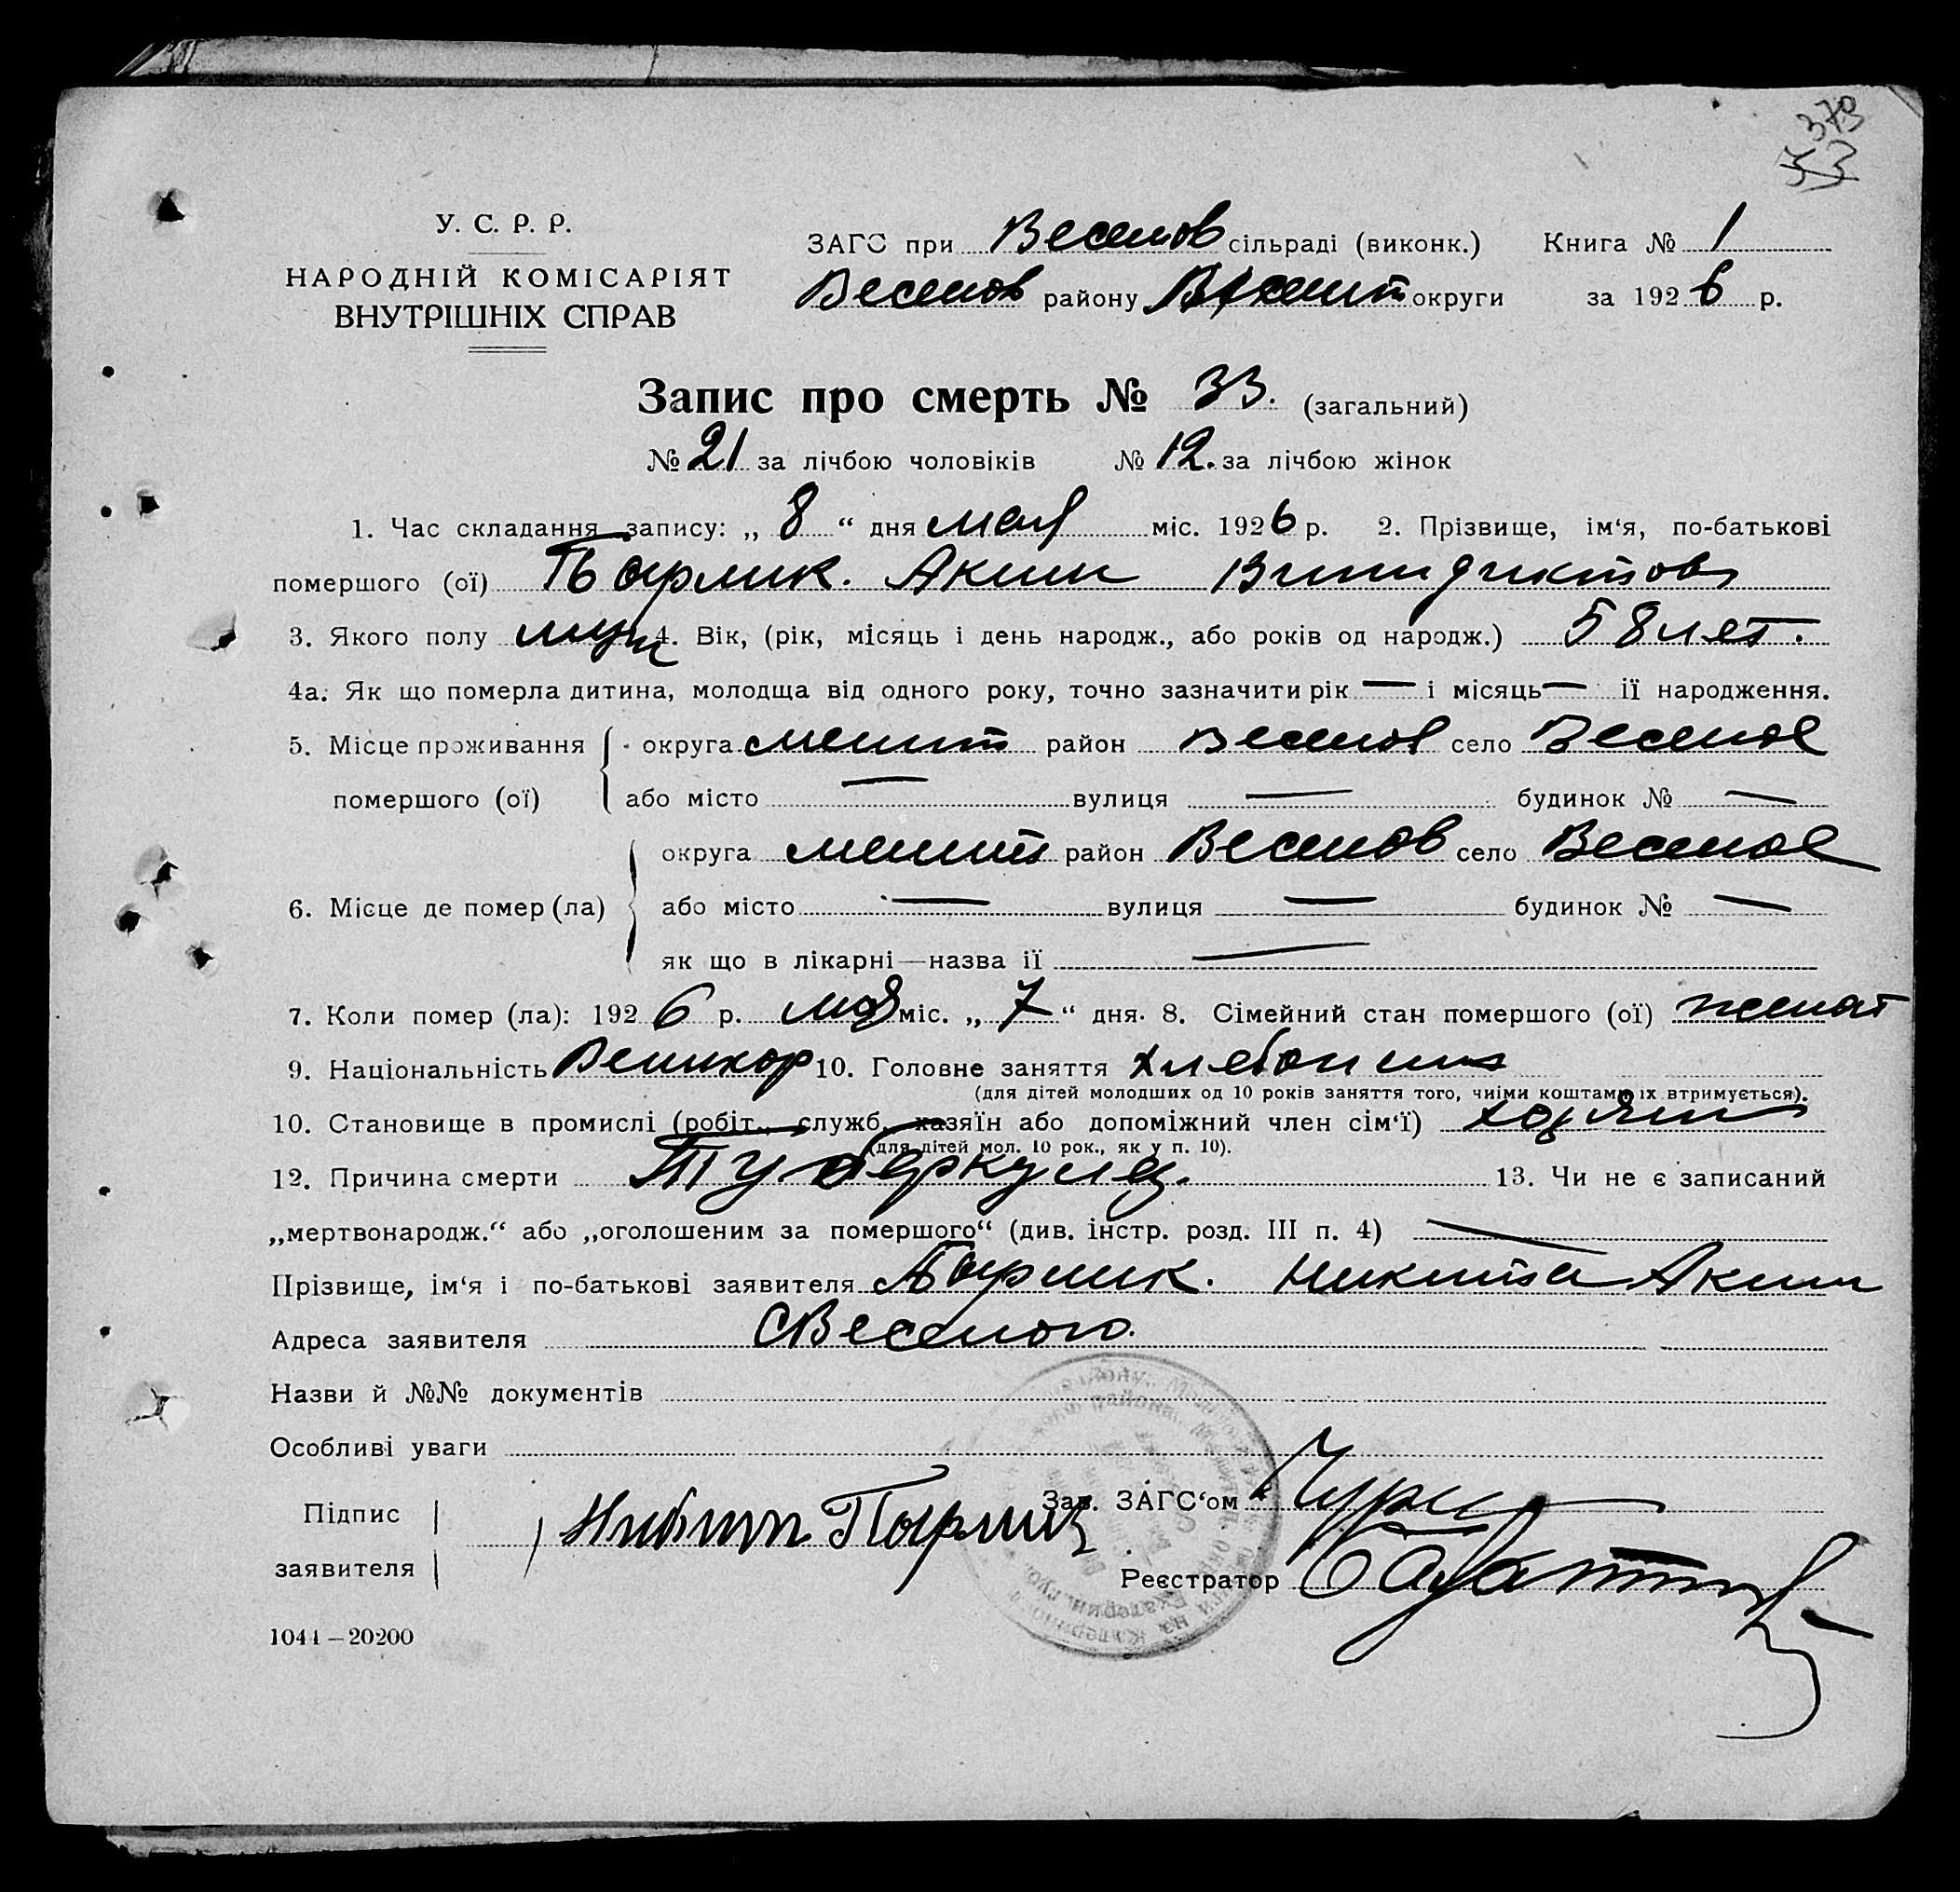 379
33
У. С. Р. Р.
НАРОДНІЙ КОМІСАРІЯТ
ВНУТРІШНІХ СПРАВ
ЗАГС при Веселов сільраді (виконк.) Книга № 1
Веселов району округи за 1926 р.
Запис про смерть № 33. (загальний)
№ 21 за лічбою чоловіків № 12. за лічбою жінок
1. Час складання запису: „ 8 “ дня мая міс. 1926 р. 2. Прізвище, ім‘я, по-батькові
помершого (ої) Аким
3. Якого полу муж 4. Вік, (рік, місяць і день народж., або років од народж.) 58 лет.
4а. Як що померла дитина, молодща від одного року, точно зазначити рік — і місяць — її народження.
5. Місце проживання округа мелит район Веселов село Веселое
помершого (ої) або місто — вулиця — будинок № —
округа мелит район Веселов село Веселое
6. Місце де помер (ла) або місто — вулиця — будинок № —
як що в лікарні—назва її —
7. Коли помер (ла): 1926 р. мая міс. „ 7 “ дня. 8. Сімейний стан помершого (ої) женат
9. Національність Великор 10. Головне заняття
(для дітей молодших од 10 років заняття того, чиїми коштами їх втримується).
10. Становище в промислі (робіт., служб., хазяїн або допоміжний член сім‘ї) хозяин
(для дітей мол. 10 рок., як у п. 10).
12. Причина смерти Туберкулез. 13. Чи не є записаний
„мертвонародж.“ або „оголошеним за помершого“ (див. інстр. розд. III п. 4) —
Прізвище, ім‘я і по-батькові заявителя Никита Аким
Адреса заявителя С Веселого.
Назви й №№ документів
Особливі уваги
Підпис Зав. ЗАГС‘ом
заявителя Реєстратор
1041—20200